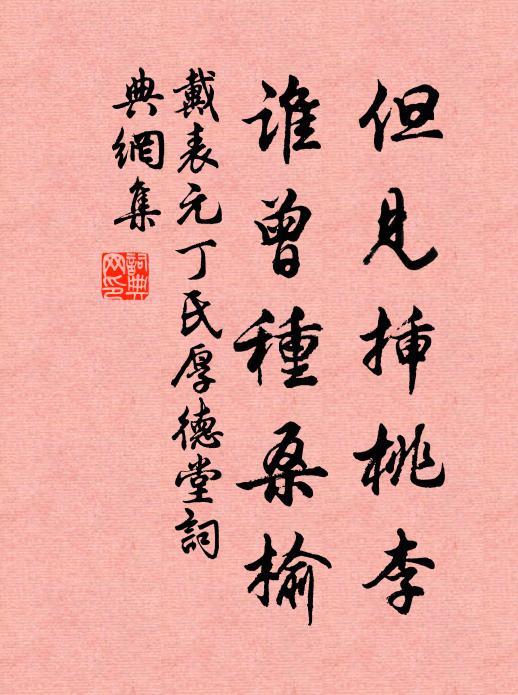 但見插桃李
誰曾種桑榆
戴表元丁氏厚德堂詞
典網集
詞典網印